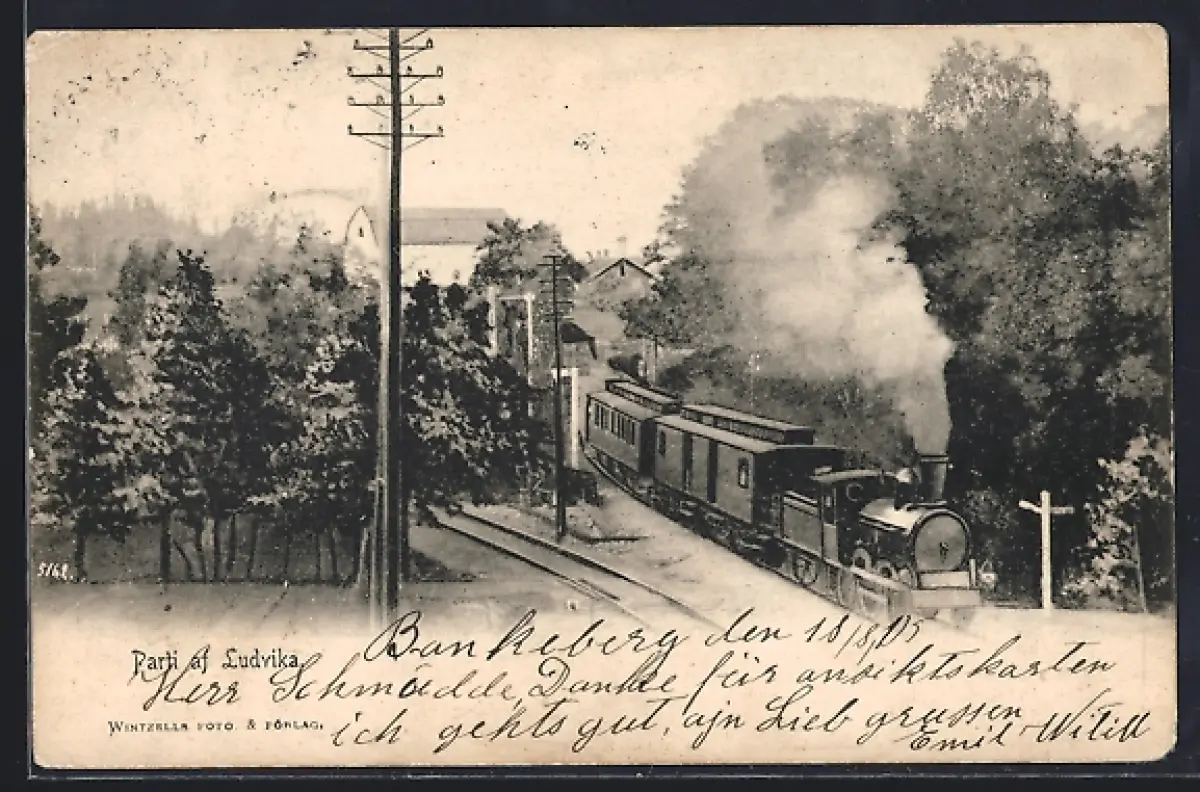 5162.
Bankeberg den 18/8 05
Parti af Ludvika.
Herr Schmædde, Danke für ansiktskarten
Wintzells Foto & Förlag.
ich gehts gut, ajn Lieb grussen
Emil